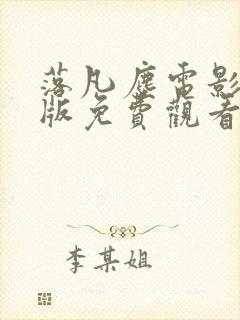 落凡塵電影
版免費觀看
李某姐